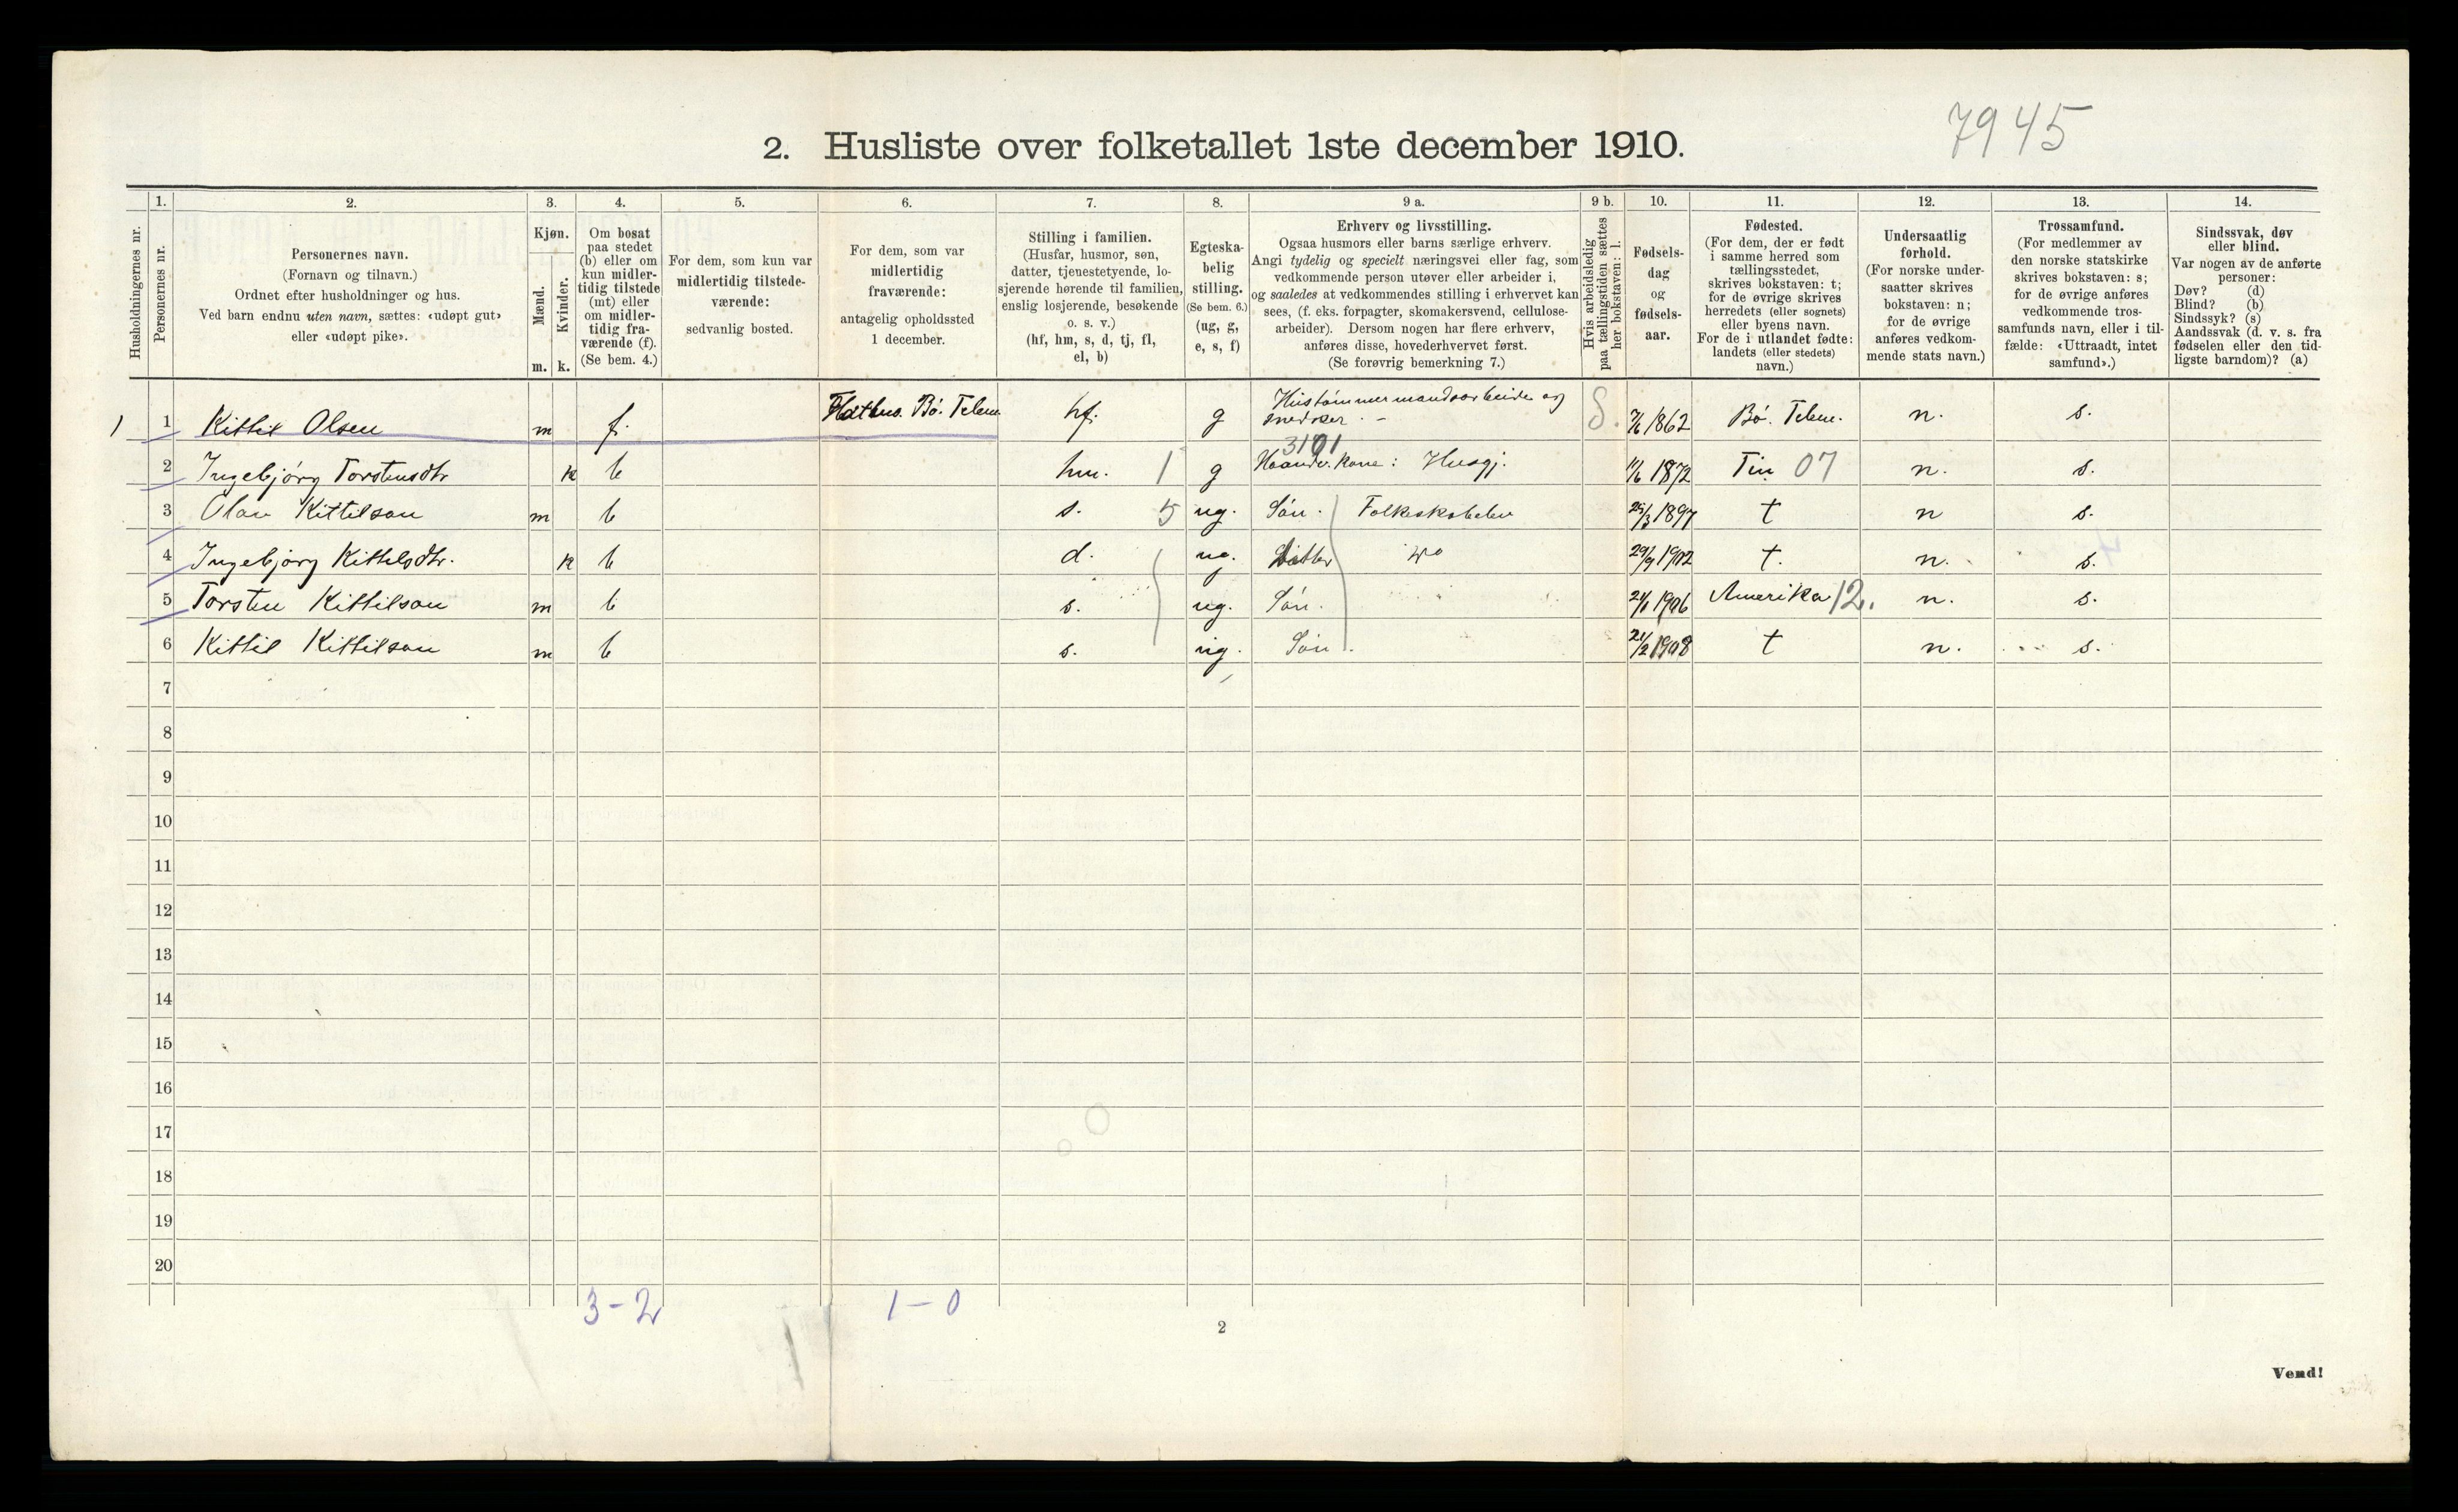 7945
2. Husliste over folketallet 1ste december 1910.
Husholdningernes nr.
1.
Personernes nr.
2.
Personernes navn.
(Fornavn og tilnavn.)
Ordnet efter husholdninger og hus.
Ved barn endnu uten navn, sættes: «udøpt gut»
eller «udøpt pike».
3.
Kjøn.
Mænd.
Kvinder.
m. k.
4.
Om bosat
paa stedet
(b) eller om
kun midler-
tidig tilstede
(mt) eller
om midler-
tidig fra-
værende (f).
(Se bem. 4.)
5.
For dem, som kun var
midlertidig tilstede-
værende:
sedvanlig bosted.
6.
For dem, som var
midlertidig
fraværende:
antagelig opholdssted
1 december.
7.
Stilling i familien.
(Husfar, husmor, søn,
datter, tjenestetyende, lo-
sjerende hørende til familien,
enslig losjerende, besøkende
o. s. v.)
(hf, hm, s, d, tj, fl,
el, b)
8.
Egteska-
belig
stilling.
(Se bem. 6.)
(ug, g,
e, s, f)
9 a.
Erhverv og livsstilling.
Ogsaa husmors eller barns særlige erhverv.
Angi tydelig og specielt næringsvei eller fag, som
vedkommende person utøver eller arbeider i,
og saaledes at vedkommendes stilling i erhvervet kan
sees, (f. eks. forpagter, skomakersvend, cellulose-
arbeider). Dersom nogen har flere erhverv,
anføres disse, hovederhvervet først.
(Se forøvrig bemerkning 7.)
9 b.
Hvis arbeidsledig
paa tællingstiden sættes
her bokstaven: l.
10.
Fødsels-
dag
og
fødsels-
aar.
11.
Fødested.
(For dem, der er født
i samme herred som
tællingsstedet,
skrives bokstaven: t;
for de øvrige skrives
herredets (eller sognets)
eller byens navn.
For de i utlandet fødte:
landets (eller stedets)
navn.)
12.
Undersaatlig
forhold.
(For norske under-
saatter skrives
bokstaven: n;
for de øvrige
anføres vedkom-
mende stats navn.)
13.
Trossamfund.
(For medlemmer av
den norske statskirke
skrives bokstaven: s;
for de øvrige anføres
vedkommende tros-
samfunds navn, eller i til-
fælde: «Uttraadt, intet
samfund».)
14.
Sindssvak, døv
eller blind.
Var nogen av de anførte
personer:
Døv? (d)
Blind? (b)
Sindssyk? (s)
Aandssvak (d. v. s. fra
fødselen eller den tid-
ligste barndom)? (a)
1 1 Kittil Olsen m f. Bø. Telem. hf. g Hustømmermandsarbeide og snedker 8. 7/6 1862 Bø. Telem. n. s.
3101
2 Ingebjørg Torstensdtr k b hm. 1 g Haandv. kone: Husgj. 11/6 1872 Tin 07 n. s.
3 Olav Kittilson m b s. 5 ug. Søn. Folkeskolelev 25/3 1897 t n s.
4 Ingebjørg Kittilsdtr. k b d. ug. Datter 29/9 1902 t. n. s.
5 Torsten Kittilson m b s. ug. Søn. 24/1 1906 Amerika 12. n. s.
6 Kittil Kittilson m b s. ug. Søn. 21/2 1908 t n. s.
7
8
9
10
11
12
13
14
15
16
17
18
19
20
3-2 1-0
2
Vend!